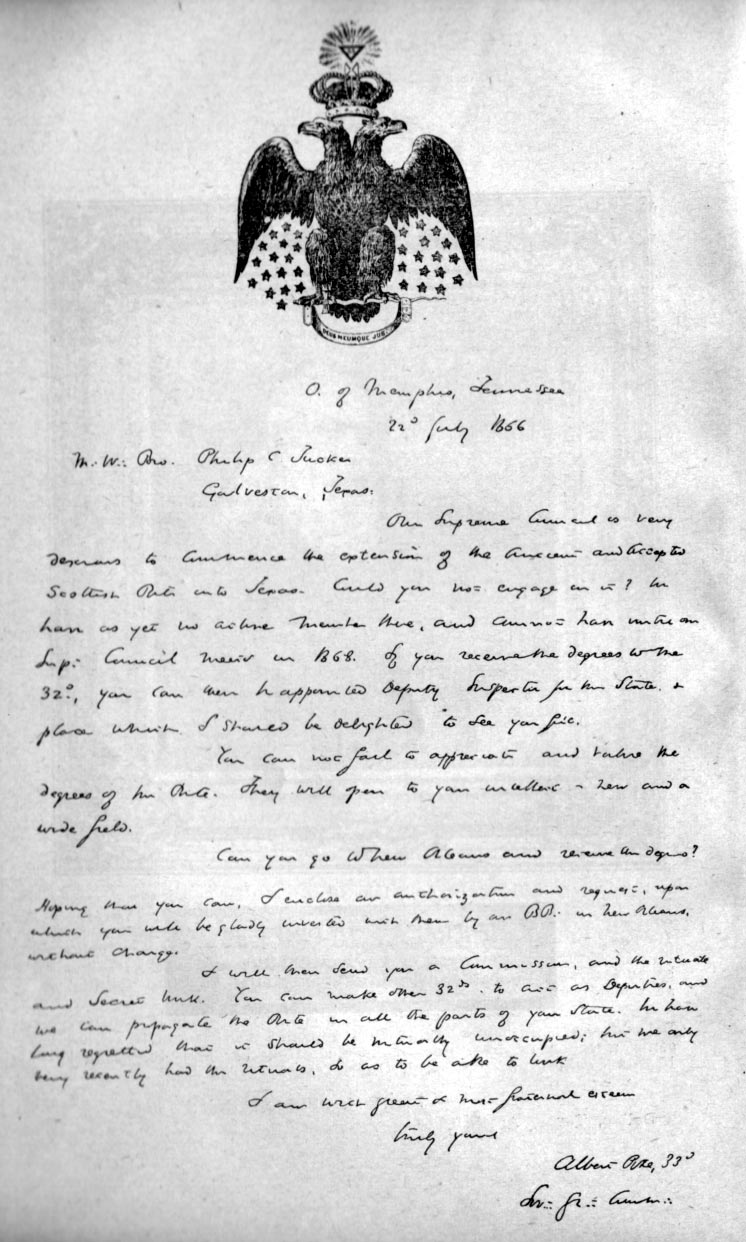 DEUS MEUMQUE JUS
O. of Memphis, Tennessee
22° July 1866
M∴ W∴ Bro. Philip C Tucker
Galveston, Texas.
Our Supreme Council is very
desirous to commence the extension of the Ancient and Accepted
Scottish Rite into Texas. Could you not engage in it? We
have as yet no active Member there, and cannot have until our
Sup∴ Council meets in 1868. If you receive the degrees to the
32°., you can then be appointed Deputy Inspector for the State, a
place which I should be delighted to see you fill.
You can not fail to appreciate and value the
degrees of the Rite. They will open to your intellect a new and a
wide field.
Can you go to New Orleans and receive the degrees?
Hoping that you can, I enclose an authorization and request, upon
which you will be gladly invested with them by our BB. in New Orleans,
without charge.
I will then send you a Commission, and the rituals
and Secret Work. You can make other 32ds. to act as Deputies, and
we can propagate the Rite in all the parts of your State. We have
long regretted that it should be virtually unoccupied; but we only
very recently had the rituals, so as to be able to work
I am with great & most fraternal esteem
truly yours
Albert Pike, 33°
Sov∴ Gr∴ Comm∴